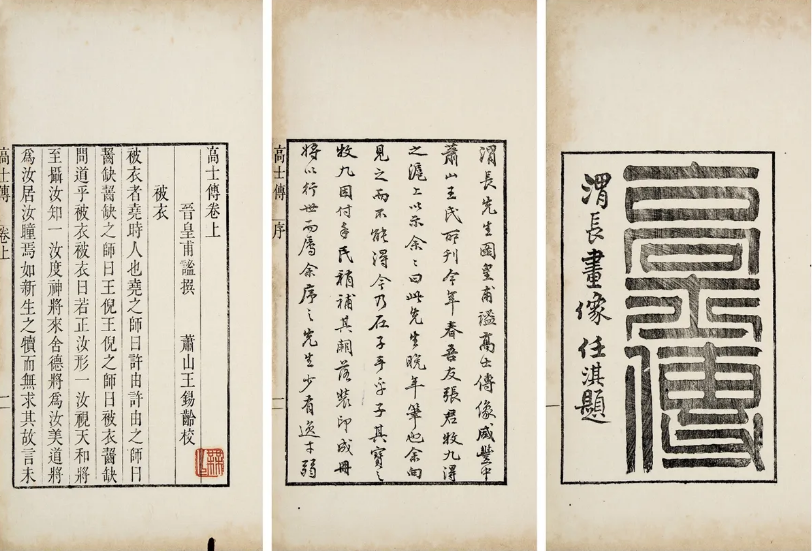 高士傳
渭長畫像任淇題
渭長先生圖皇甫謐高士傳像咸豐中
蕭山王氏所刊今年春吾友張君牧九得
之滬上以示余〻曰此先生晚年筆也余向
見之而不能得今乃在子手乎子其寶之
牧九因付手民稍補其闕落裝印成冊
將以行世而屬余序之先生少有逸才弱
高士傳 序
高士傳卷上
晉皇甫謐撰 蕭山王錫齡校
被衣
被衣者堯時人也堯之師曰許由許由之師曰
齧缺齧缺之師曰王倪王倪之師曰被衣齧缺
問道乎被衣被衣曰若正汝形一汝視天和將
至攝汝知一汝度神將來舍德將爲汝美道將
爲汝居汝瞳焉如新生之犢而無求其故言未
高士傳 卷上 一